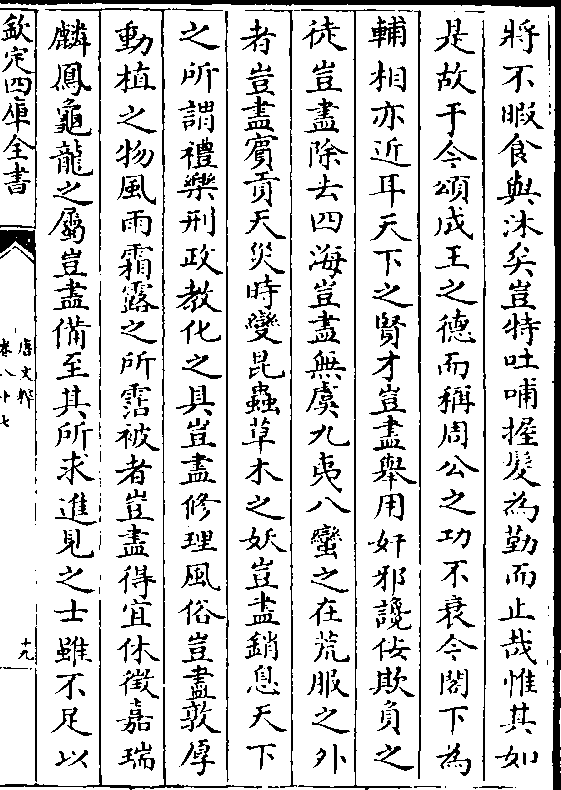 將不暇食與沐矣豈特吐哺握髮為勤而止哉惟其如
是故于今頌成王之德而稱周公之功不衰今閣下為
輔相亦近耳天下之賢才豈盡舉用奸邪讒佞欺負之
徒豈盡除去四海豈盡無虞九夷八蠻之在荒服之外
者豈盡賓貢天災時變昆蟲草木之妖豈盡銷息天下
之所謂禮樂刑政教化之具豈盡修理風俗豈盡敦厚
動植之物風雨霜露之所霑被者豈盡得宜休徵嘉瑞
麟鳳龜龍之屬豈盡備至其所求進見之士雖不足以
欽定四庫全書
唐文粹
卷八十七
十九